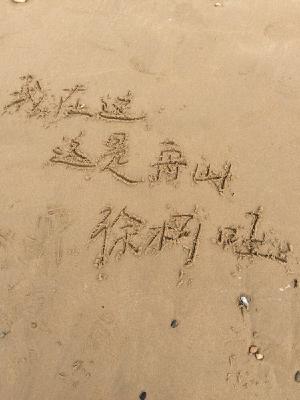 我在这
这是舟山
徐